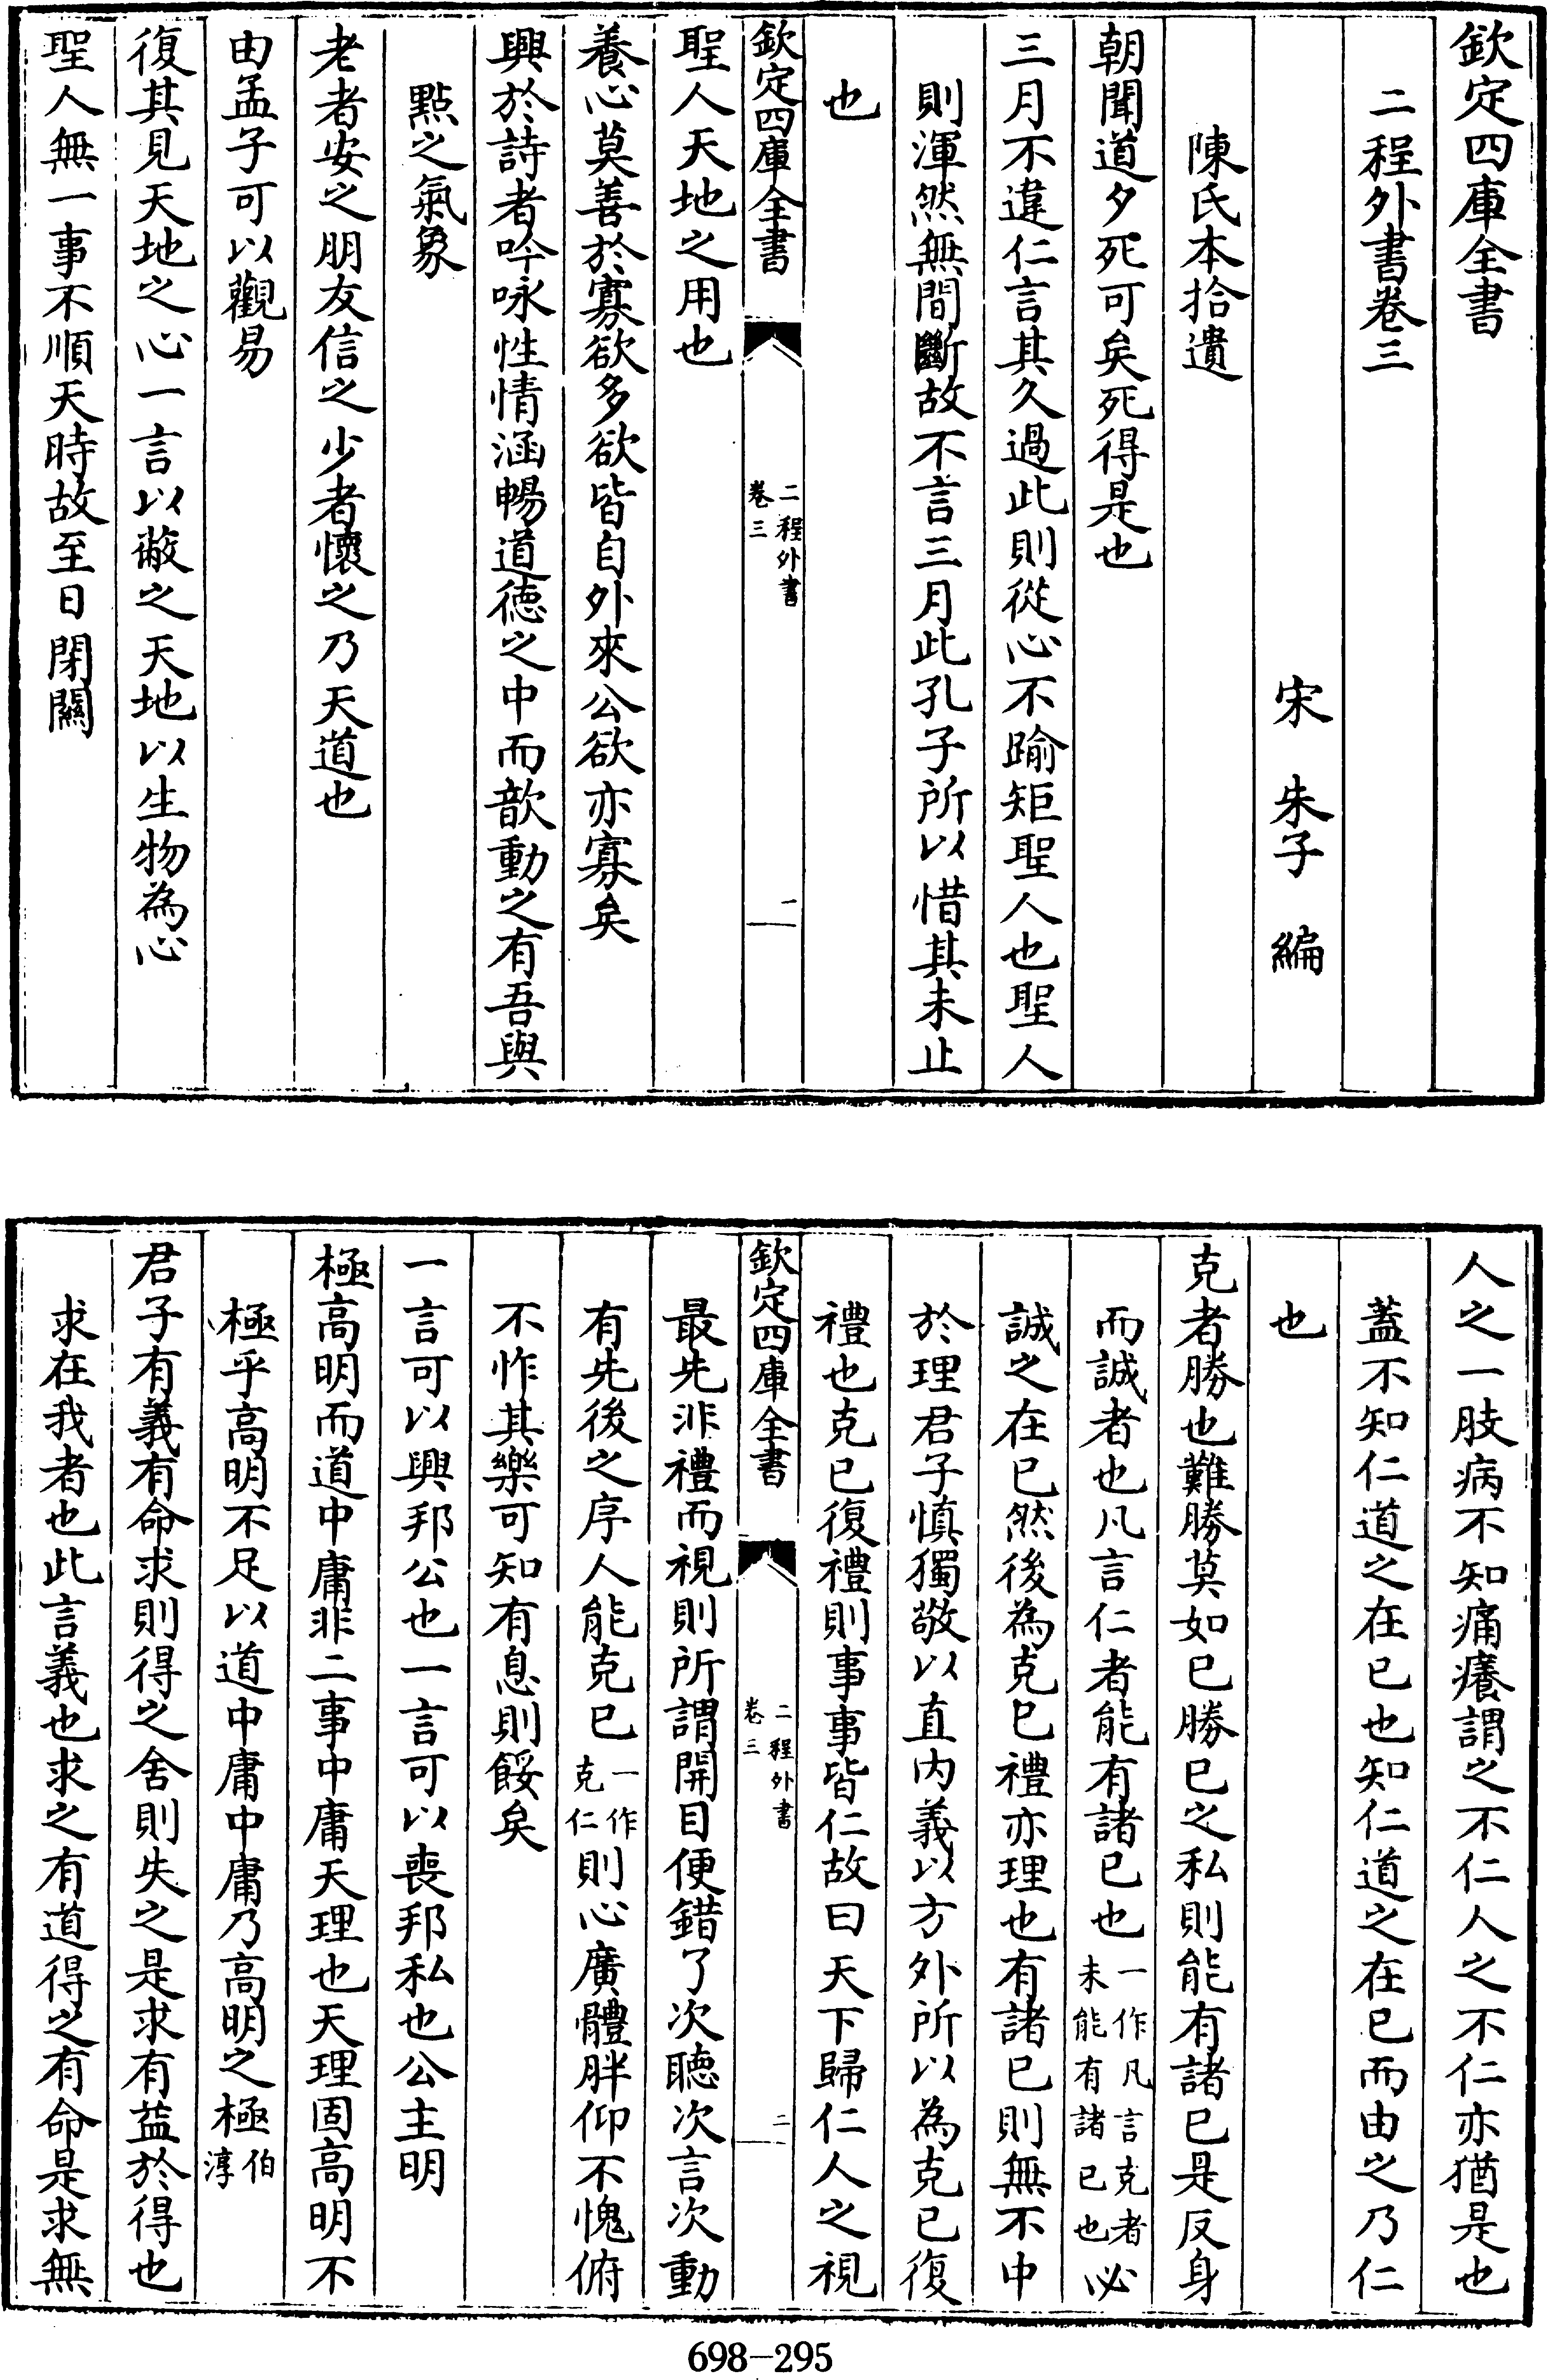 欽定四庫全書
二程外書卷三
宋 朱子 編
陳氏本拾遺
朝聞道夕死可矣死得是也
三月不違仁言其久過此則從心不踰矩聖人也聖人
則渾然無間斷故不言三月此孔子所以惜其未止
也
欽定四庫全書
二程外書
卷三
一
聖人天地之用也
養心莫善於寡欲多欲皆自外來公欲亦寡矣
興於詩者吟咏性情涵暢道德之中而歆動之有吾與
點之氣象
老者安之朋友信之少者懷之乃天道也
由孟子可以觀易
復其見天地之心一言以蔽之天地以生物為心
聖人無一事不順天時故至日閉關
人之一肢病不知痛癢謂之不仁人之不仁亦猶是也
蓋不知仁道之在已也知仁道之在已而由之乃仁
也
克者勝也難勝莫如已勝已之私則能有諸已是反身
而誠者也凡言仁者能有諸已也一作凡言克者未能有諸已也必
誠之在已然後為克已禮亦理也有諸已則無不中
於理君子慎獨敬以直内義以方外所以為克已復
禮也克已復禮則事事皆仁故曰天下歸仁人之視
欽定四庫全書
二程外書
卷三
二
最先非禮而視則所謂開目便錯了次聽次言次動
有先後之序人能克已一作克仁則心廣體胖仰不愧俯
不怍其樂可知有息則餒矣
一言可以興邦公也一言可以喪邦私也公主明
極高明而道中庸非二事中庸天理也天理固高明不
極乎高明不足以道中庸中庸乃高明之極伯淳
君子有義有命求則得之舍則失之是求有益於得也
求在我者也此言義也求之有道得之有命是求無
698-295